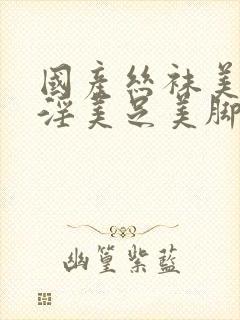 國產絲袜美
淫美足美脚
幽篁紫藍